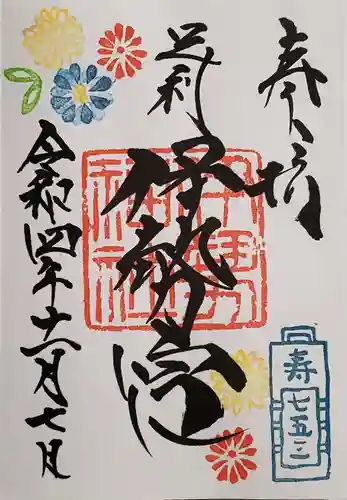 奉拝
足利
伊勢宮
伊勢
神社
令和四年十一月七日
寿
七五三